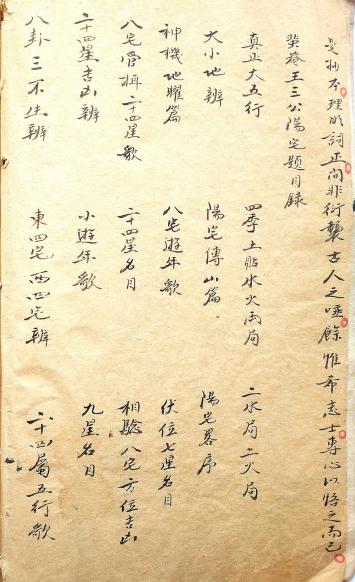 是抄不理明詞正尚非衍襲古人之唾餘惟希志士專心以悟之而已
王三公陽宅題目錄
真正大五行 四季土貼水火局 二水局二火局
大小地辨 陽宅傳山篇 陽宅畧序
神機地曜篇 八宅遊年歌 伏位七星名目
八宅管 二十四星歌 二十四星名目 相 八宅方位吉凶
二十四星吉凶辨 小遊年歌 九星名目
八卦三不生辨 東四宅西四宅辨 二十四屬五行歌